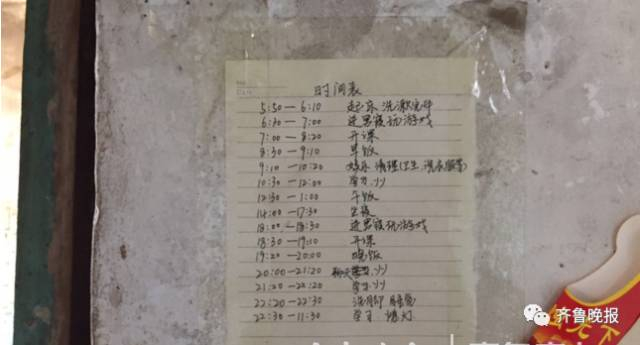 时间表
5:50 — 6:10 起床 洗漱完毕
6:30 — 7:00 进男寝玩游戏
7:00 — 8:20 开课
8:30 — 9:10 早饭
9:10 — 10:20 娱乐 清理卫生 洗衣服等
10:30 — 12:00 学习
12:30 — 1:00 午饭
14:00 — 17:30
18:00 — 18:30 进男寝玩游戏
18:30 — 19:10 开课
19:20 — 20:00 晚饭
20:00 — 21:20
21:20 — 22:20 学习
22:20 — 22:30 洗脚
22:30 — 11:30 学习 熄灯
齐鲁晚报